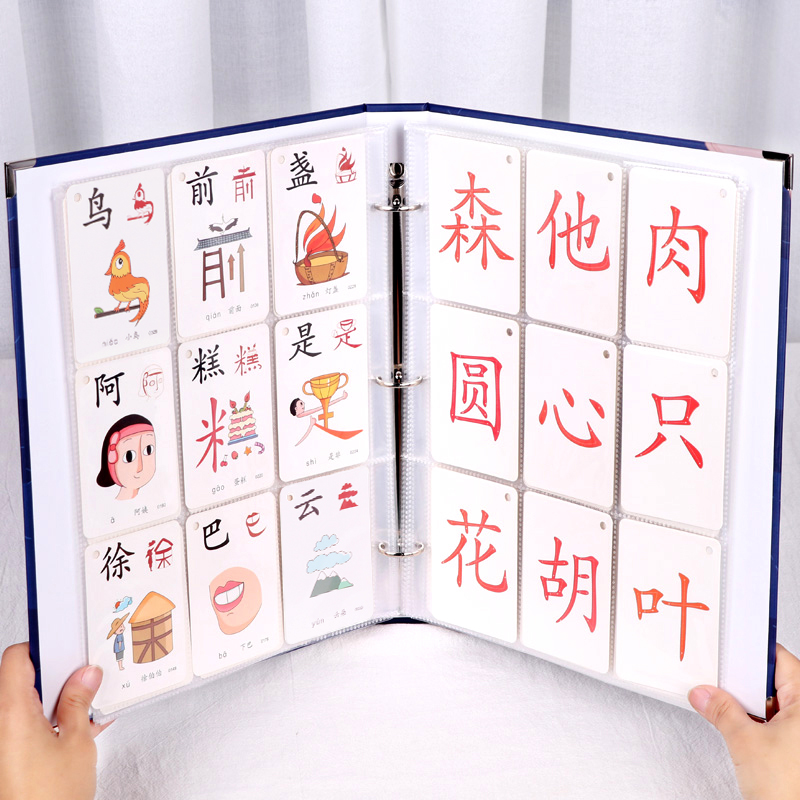 鸟
niǎo 小鸟
前 前
qián 前面
盏
zhǎn 灯盏
阿
ā 阿姨
糕 糕
gāo 蛋糕
是 是
shì 是非
徐 徐
xú 徐伯伯
巴 巴
bā 下巴
云
yún
森
他
肉
圆
心
只
花
胡
叶